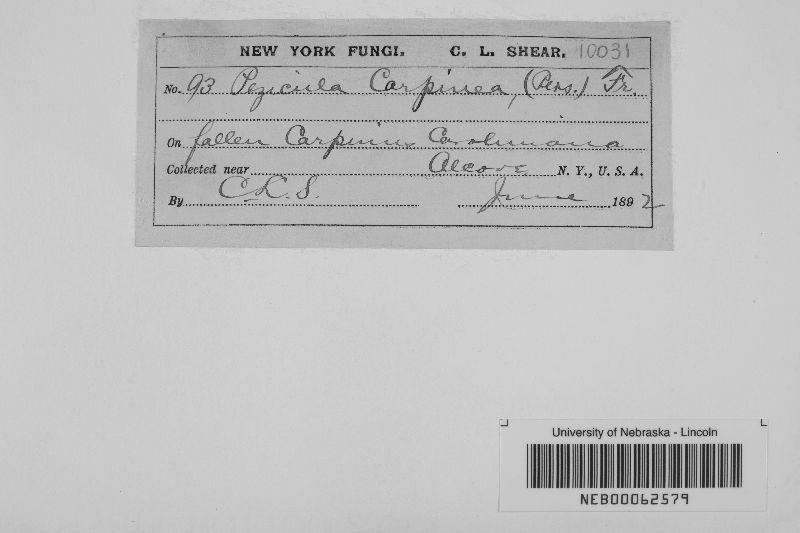 NEW YORK FUNGI. C. L. SHEAR. 10031
No. 93 Pezicula Carpinea, (Pers.) Fr.
On fallen Carpinus Caroliniana
Collected near Alcove N. Y., U. S. A.
By C.L.S. June 1892
University of Nebraska - Lincoln
NEB00062579